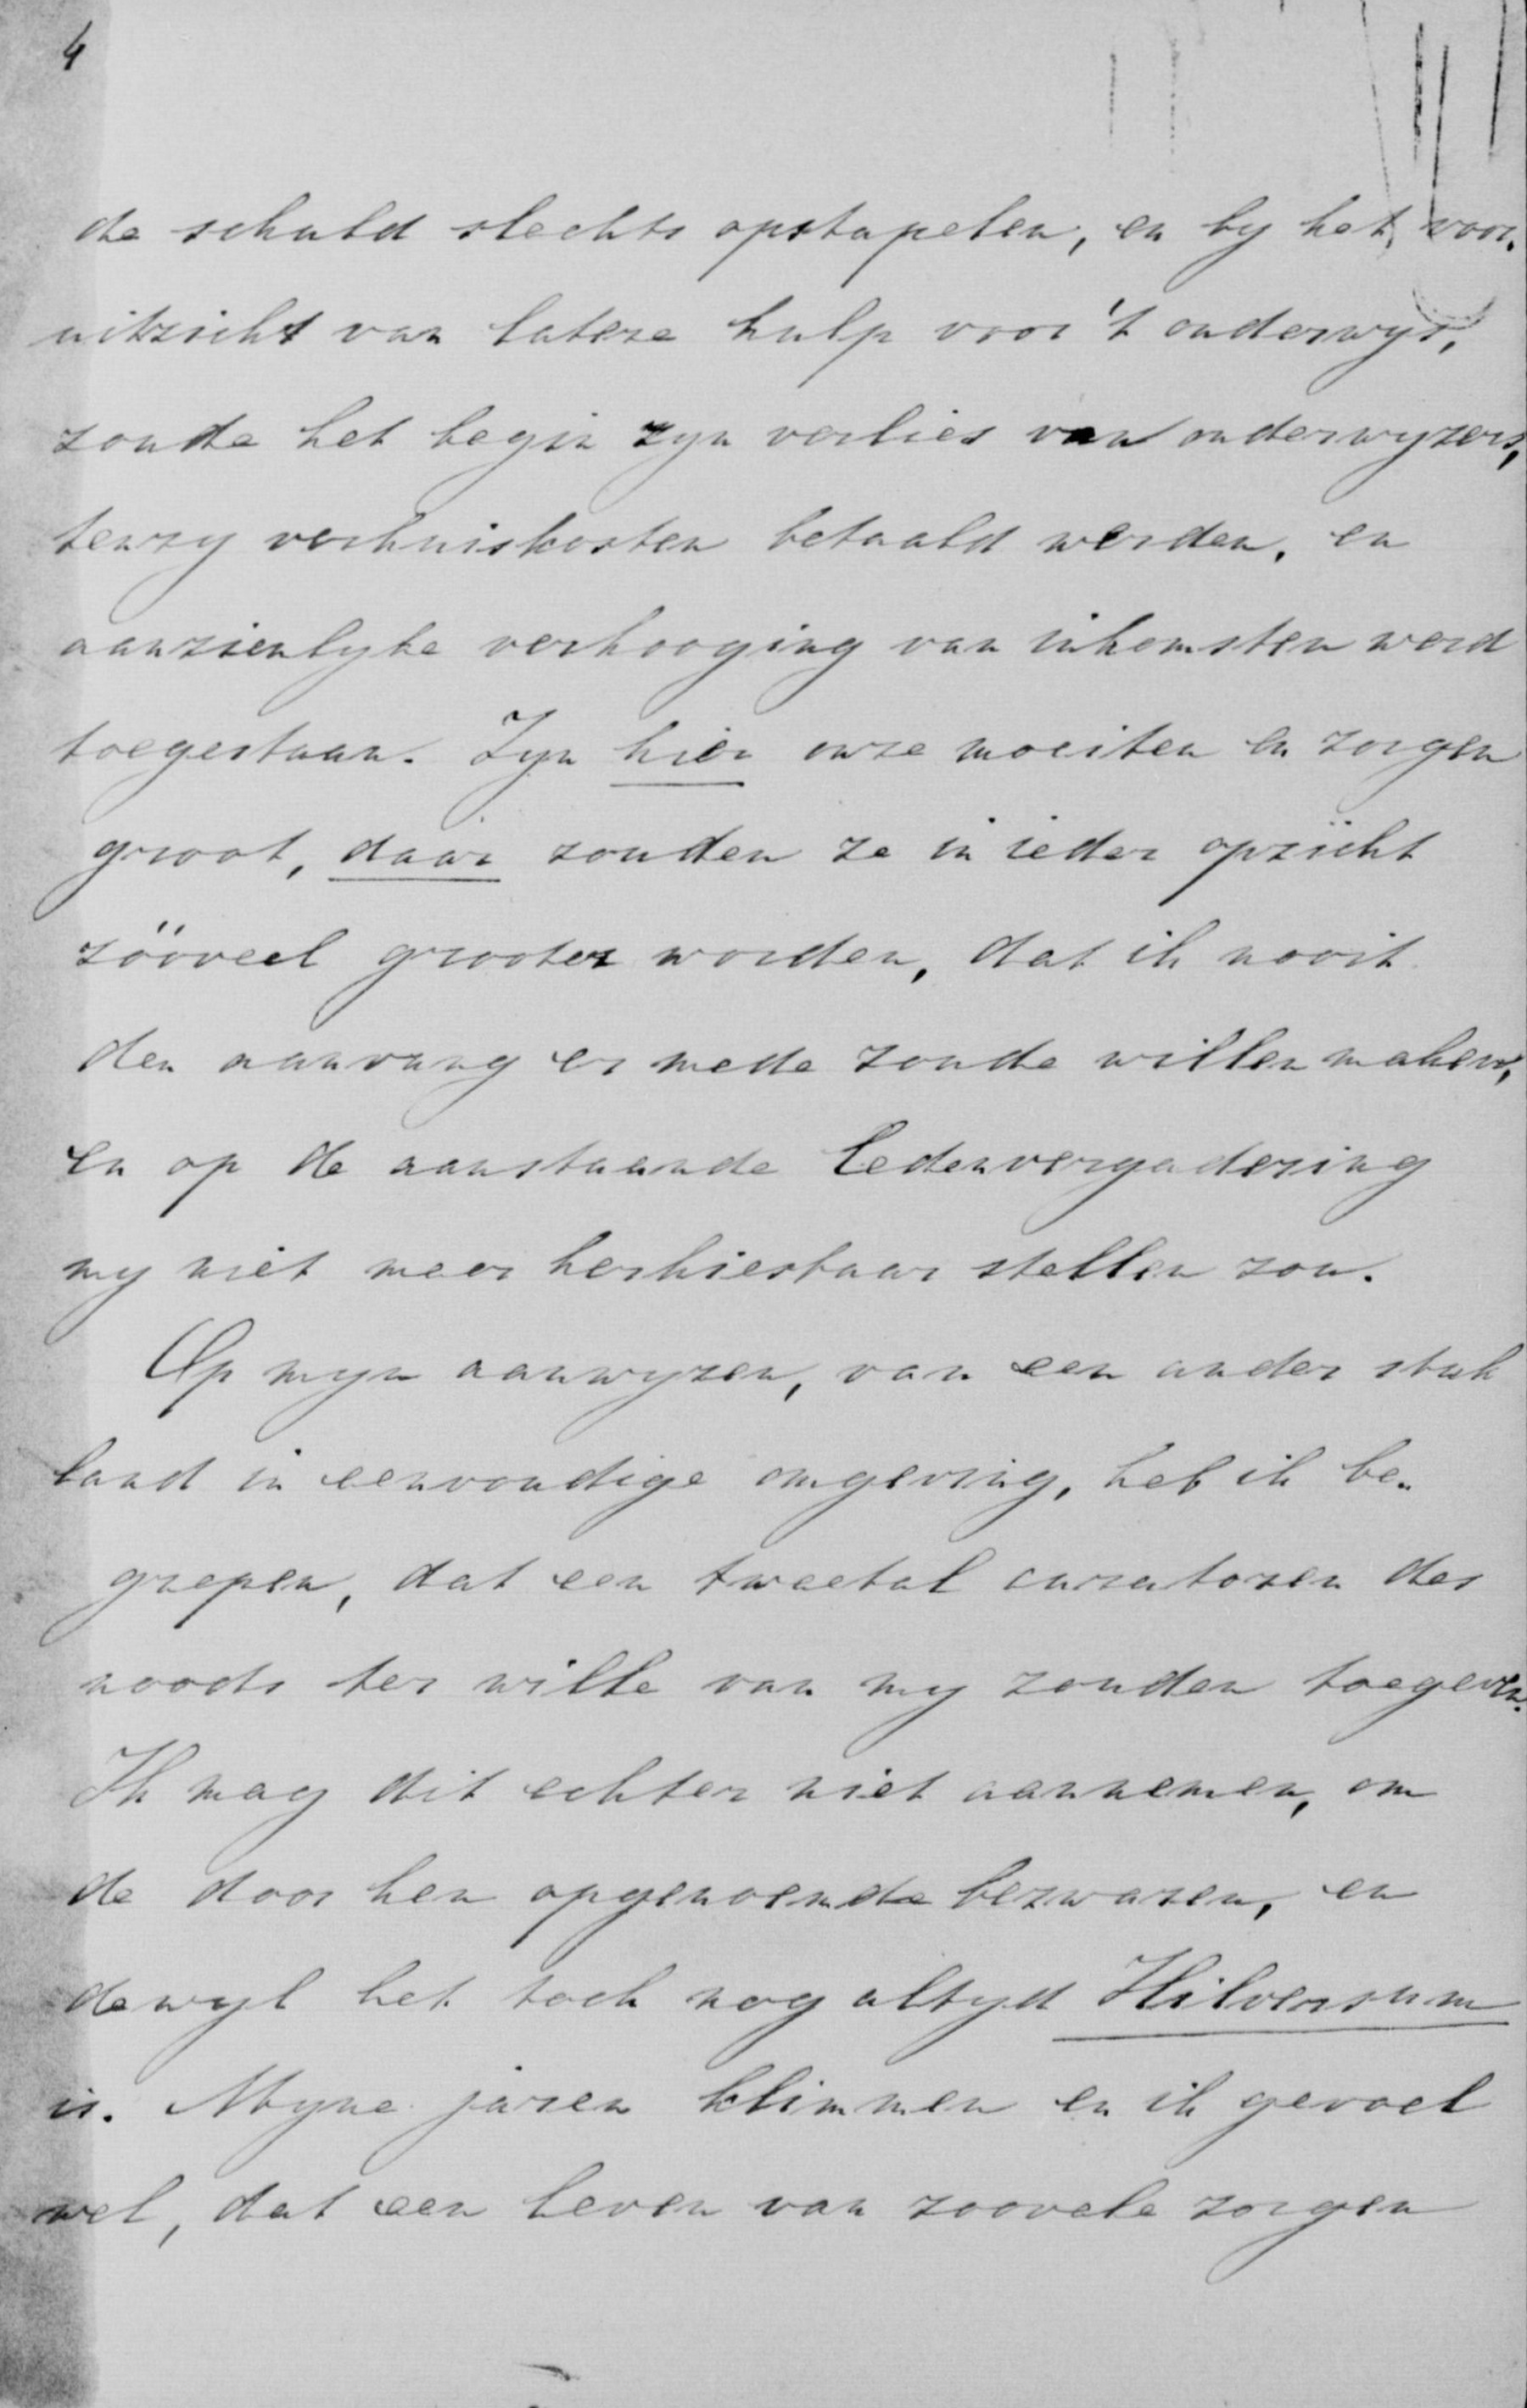 4
de schuld slechts opstapelen, en by het voor-
uitzicht van latere hulp voor 't onderwys,
zoude het begin zyn verlies van onderwyzers,
tenzy verhuiskosten betaald werden, en
aanzienlyke verhooging van inkomsten werd
toegestaan. Zyn hier onze moeiten en zorgen
groot, daar zouden ze in ieder opzicht
zóóveel grooter worden, dat ik nooit
den aanvang er mede zoude willen maken,
en op de aanstaande Ledenvergadering
my niet meer herkiesbaar stellen zou.
Op myn aanwyzen, van een ander stuk
land in eenvoudige omgeving, heb ik be-
grepen, dat een tweetal curatoren des
noods ter wille van my zouden toegeven.
Ik mag dit echter niet aannemen, om
de door hen opgenoemde bezwaren, en
dewyl het toch nog altyd Hilversum
is. Myne jaren klimmen en ik gevoel
wel, dat een leven van zoovele zorgen